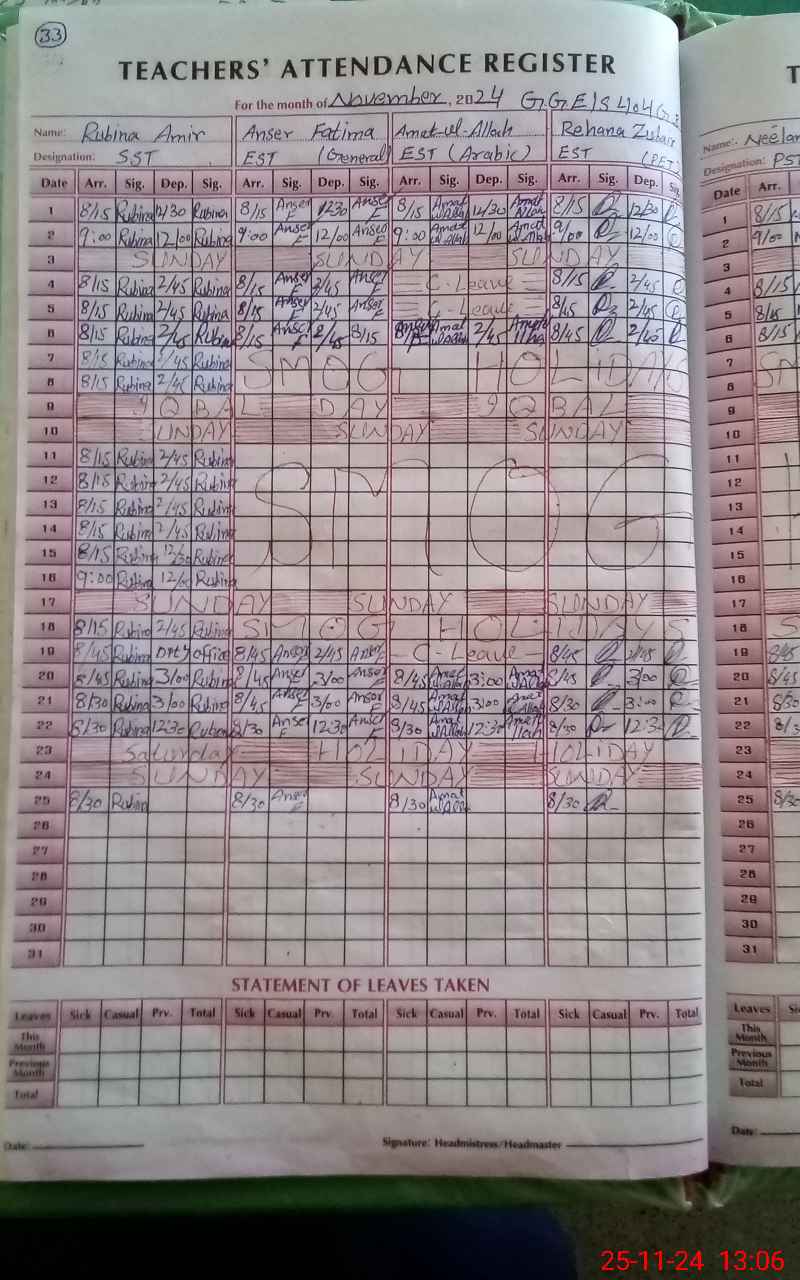 33
TEACHERS' ATTENDANCE REGISTER
For the month of November, 2024 G.G.E/S 404G.B
Name: Rubina Amir Anser Fatima Amat-ul-Allah Rehana Zubair
Designation: SST EST (General) EST (Arabic) EST (PET)
Date Arr. Sig. Dep. Sig. Arr. Sig. Dep. Sig. Arr. Sig. Dep. Sig. Arr. Sig. Dep. Sig.
1 8/15 Rubina 12/30 Rubina 8/15 Anser F 12:30 Anser F 8/15 Amat ul Allah 12/30 Amat 8/15 12:30
2 9:00 Rubina 12/00 Rubina 9:00 Anser F 12/00 Anser F 9:00 Amat ul Allah 12/00 Amat ul Allah 9/00 12/00
3 SUNDAY SUNDAY SUNDAY
4 8/15 Rubina 2/45 Rubina 8/15 Anser F 2/45 Anser F C-Leave 8/15 2/45
5 8/15 Rubina 2/45 Rubina 8/15 Anser F 2/45 Anser F C-Leave 8/45 2/45
6 8/15 Rubina 2/45 Rubina 8/15 Anser F 2/45 8/15 Amat ul Allah 2/45 8/45 2/45
7 8/15 Rubina 2/45 Rubina SMOG HOLIDAYS
8 8/15 Rubina 2/45 Rubina
9 IQBAL DAY IQBAL
10 SUNDAY SUNDAY SUNDAY
11 8/15 Rubina 2/45 Rubina
12 8/15 Rubina 2/45 Rubina
13 8/15 Rubina 2/45 Rubina SMOG
14 8/15 Rubina 2/45 Rubina
15 8/15 Rubina 12/30 Rubina
16 9:00 Rubina 12/00 Rubina
17 SUNDAY SUNDAY SUNDAY
18 8/15 Rubina 2/45 Rubina SMOG HOLIDAYS
19 8/45 Rubina Office 8/45 Anser 2/45 Anser C-Leave 8/45 2/45
20 8/45 Rubina 3/00 Rubina 8/45 Anser F 3/00 Anser F 8/45 Amat ul Allah 3:00 Amat ul Allah 8/45 3:00
21 8/30 Rubina 3/00 Rubina 8/45 Anser F 3/00 Anser F 8/45 Amat ul Allah 3:00 Amat ul Allah 8/30 3:00
22 8/30 Rubina 12:30 Rubina 8/30 Anser F 12:30 Anser F 8/30 Amat ul Allah 12:30 8/30 12:30
23 Saturday HOLIDAY HOLIDAY
24 SUNDAY SUNDAY SUNDAY
25 8/30 Rubin 8/30 Anser F 8/30 Amat ul Allah 8/30
26
27
28
29
30
31
STATEMENT OF LEAVES TAKEN
Leaves Sick Casual Prv. Total Sick Casual Prv. Total Sick Casual Prv. Total Sick Casual Prv. Total
This Month
Previous Month
Total
Date: Signature: Headmistress/Headmaster
T
Name:
Designation:
Date Arr.
1 8/15
2 9/00
3
4 8/15
5 8/45
6 8/15
7 SM
8
9
10
11
12
13
14
15
16
17
18
19 8/45
20 8/45
21 8/30
22
23
24
25 8/30
26
27
28
29
30
31
Leaves
This Month
Previous Month
Total
Date:
25-11-24 13:06